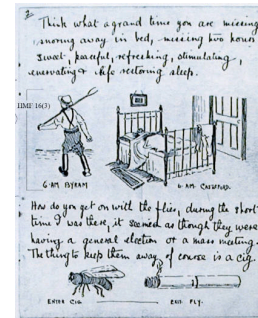 2
Think what a grand time you are missing
snoring away in bed, missing two hours
sweet, peaceful, refreshing, stimulating,
enervating & life restoring sleep.
HMF 16(3)
6 AM BYRAM
6 AM CASTLEFORD.
How do you get on with the flies, during the short
time I was there, it seemed as though they were
having a general election or a mass meeting.
The thing to keep them away of course is a cig.
ENTER CIG
EXIT FLY.